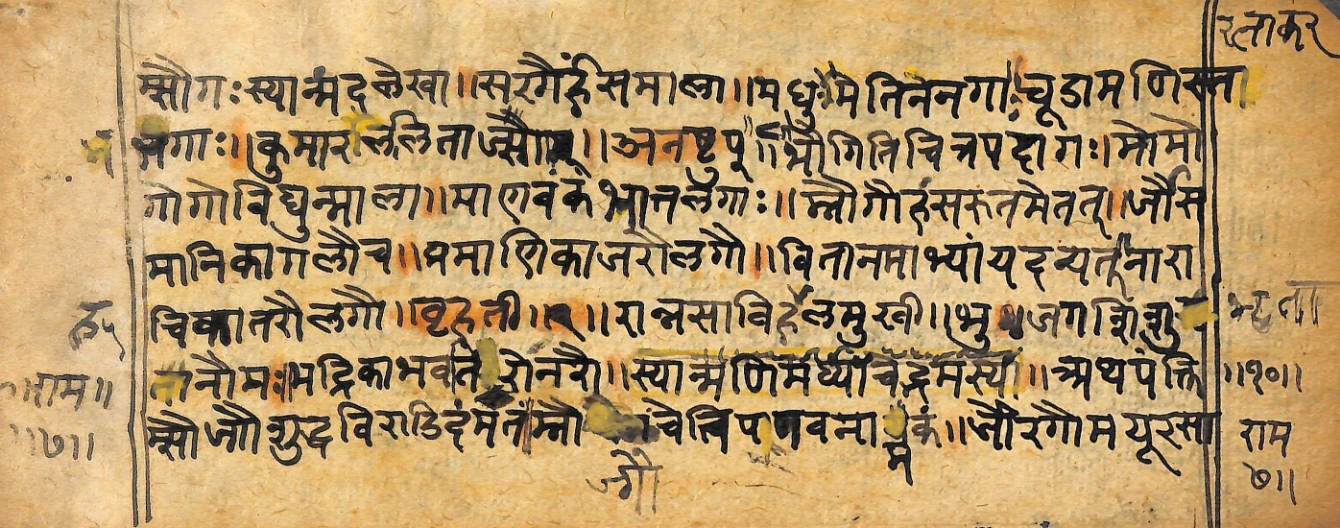 रत्नाकर
म्सौगःस्यान्मदलेखा॥सरगैर्हंसमाला॥मधुमितिनेनगाःचूडामणिस्त
भगाः॥कुमारललिताज्सौग्॥अनष्टुप्॥भौगितिचित्रपदागः॥मोमो
गोगोविद्युन्माला॥माणवकंभात्तलगाः॥म्नौगौहंसरुतमेतत्॥र्जौस
मानिकागलौच॥प्रमाणिकाजरौलगौ॥वितानमाभ्यांयदन्यत्॥नारा
चिकातरौलगौ॥वृहती॥९॥रान्नसाविहलमुखी॥भुजगशिशु
तानौमः॥भद्रिकाभवतिरोनरौ॥स्यान्मणिमध्यंचेद्भमस्याः॥अथपंक्ति
॥१०॥
म्सौज्गौशुद्धविराडिदंमतंम्नौ चेतिपणवनामकं॥र्जौरगौमयूरसा
ज्गौ
॥राम॥
॥७॥
राम
७॥